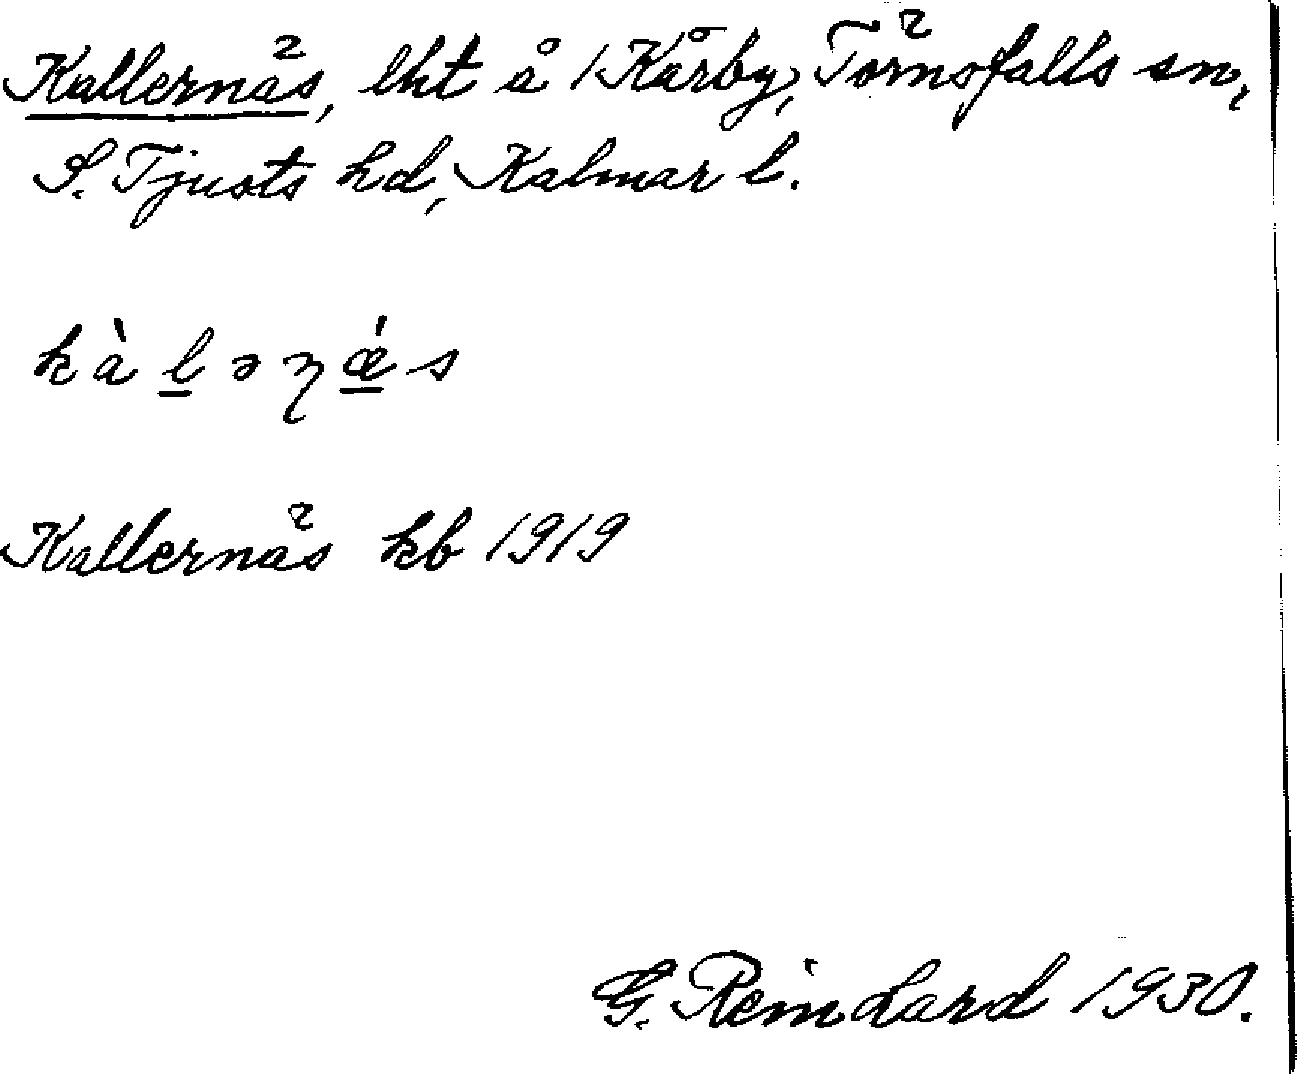 Kallernäs, lht å Kårby, Törnsfalls sn,
S. Tjusts hd, Kalmar l.
kàl̲əɳǽ̲s
Kallernäs kb 1919
G. Reinhard 1930.